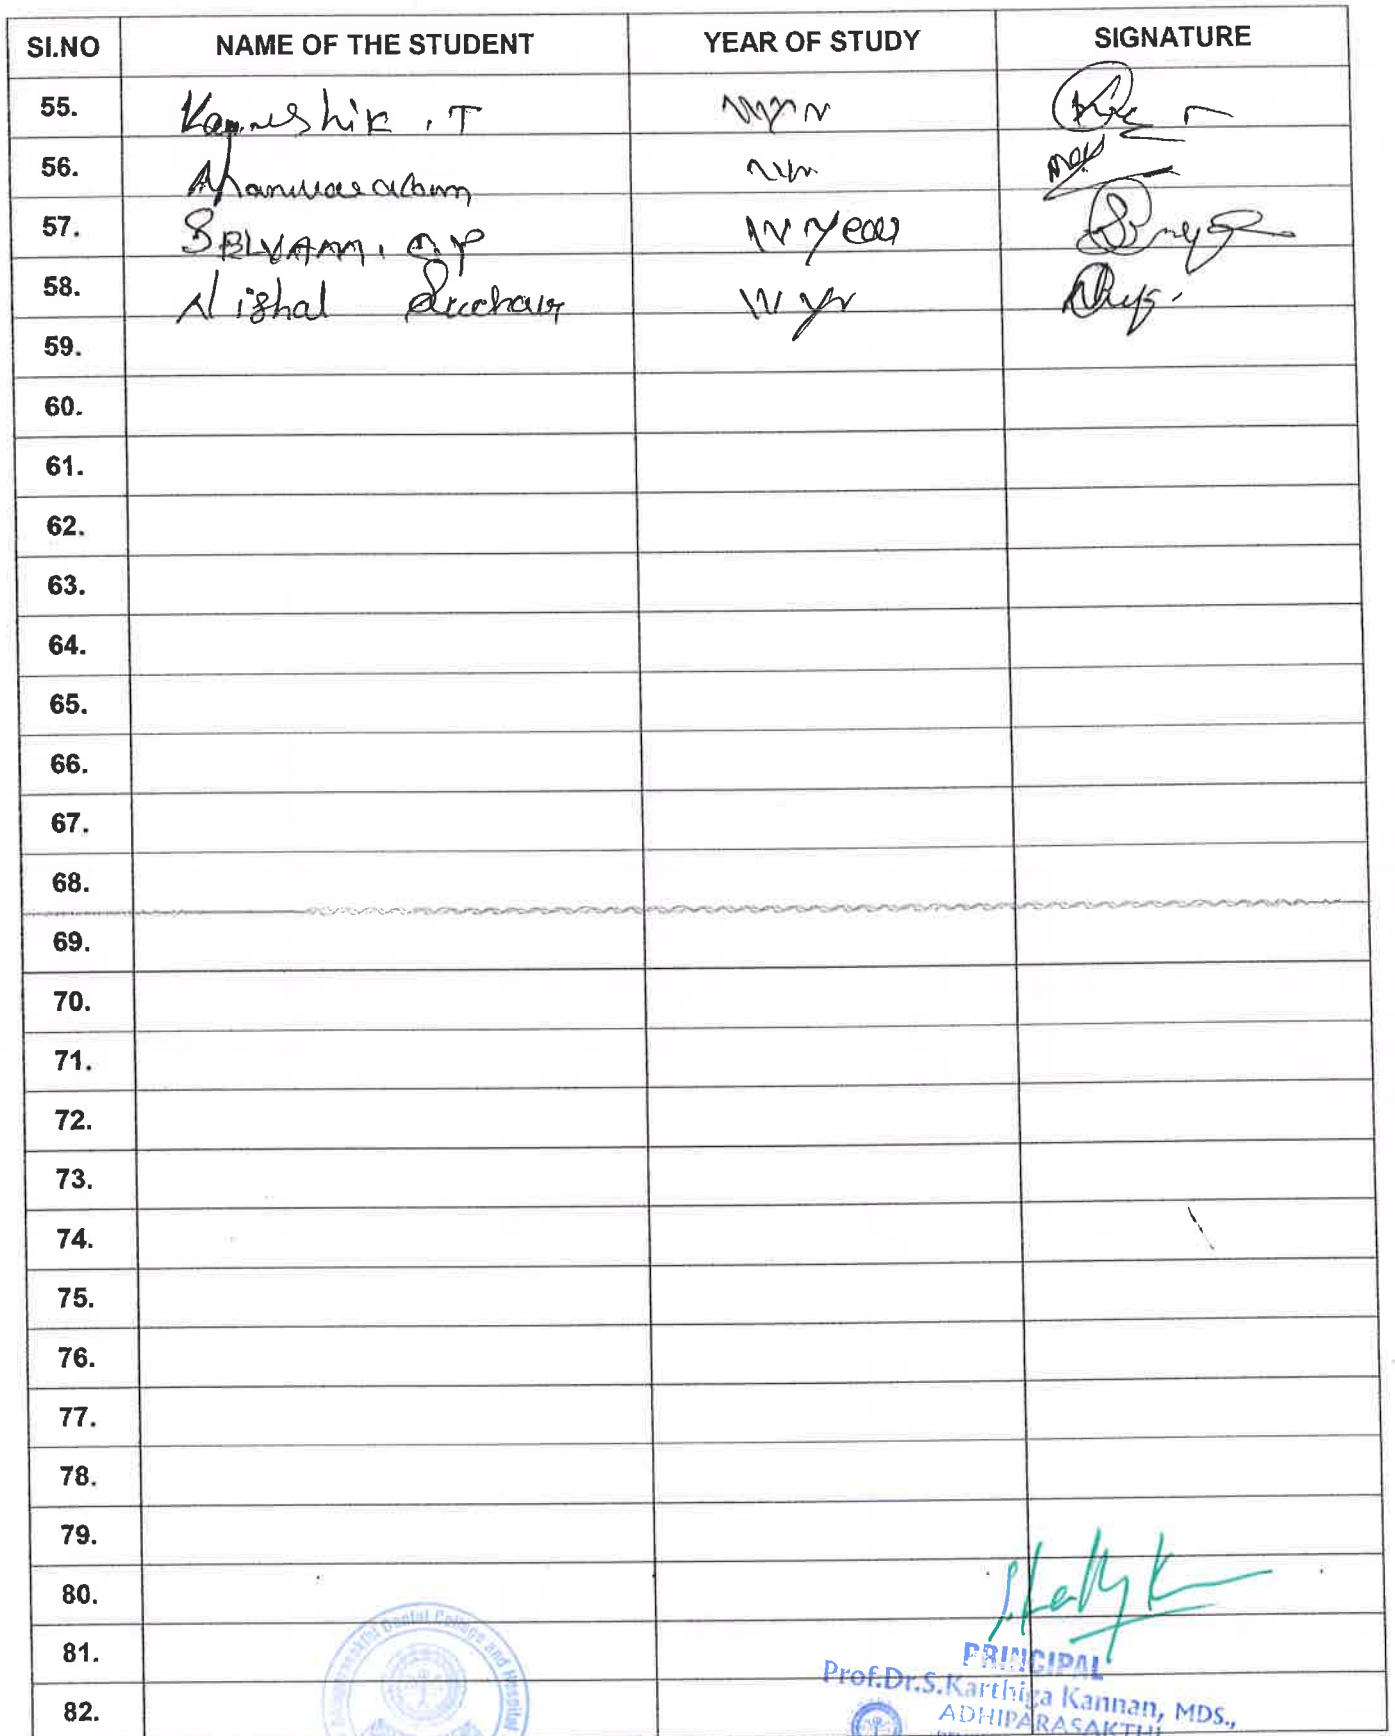 SI.NO NAME OF THE STUDENT YEAR OF STUDY SIGNATURE
55. T
56.
57. SELVAM IV year
58. Nishal IV yr
59.
60.
61.
62.
63.
64.
65.
66.
67.
68.
69.
70.
71.
72.
73.
74.
75.
76.
77.
78.
79.
80.
81.
82.
Dental College and Hospital
PRINCIPAL
Prof.Dr.S.Karthiga Kannan, MDS.,
ADHIPARASAKTHI